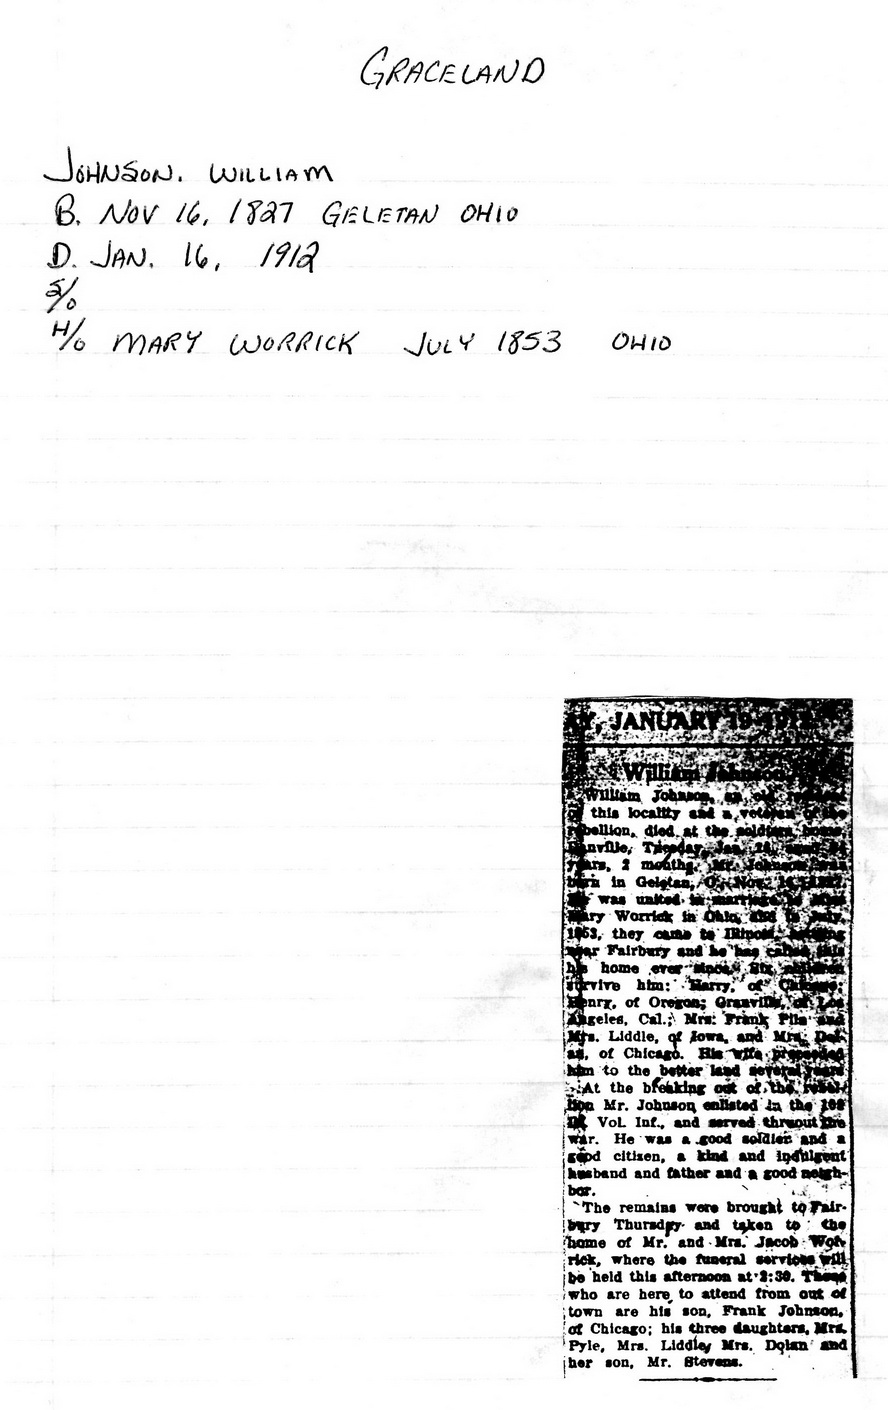 GRACELAND
JOHNSON. WILLIAM
B. NOV 16, 1827 GELETAN OHIO
D. JAN. 16, 1912
S/O
H/O MARY WORRICK JULY 1853 OHIO
AY, JANUARY 19 1912
William Johnson
William Johnson, an old
of this locality and a veteran of the
rebellion, died at the soldiers home,
Danville, Tuesday, Jan. aged 84
years, 2 months. Mr. Johnson was
born in Geletan, O., Nov. 16, 1827.
He was united in marriage to Miss
Mary Worrick in Ohio, and in July,
1853, they came to Illinois,
near Fairbury and he has called this
his home ever since. Six children
survive him: Harry, of Chicago;
Henry, of Oregon; Granville, of Los
Angeles, Cal.; Mrs. Frank Pile and
Mrs. Liddle, of Iowa, and Mrs. Dol-
an, of Chicago. His wife preceeded
him to the better land several years
At the breaking out of the rebel-
lion Mr. Johnson enlisted in the
Ill. Vol. Inf., and served thruout the
war. He was a good soldier and a
good citizen, a kind and indulgent
husband and father and a good neigh-
bor.
The remains were brought to Fair-
bury Thursday and taken to the
home of Mr. and Mrs. Jacob Wor-
rick, where the funeral services will
be held this afternoon at 2:30. Those
who are here to attend from out of
town are his son, Frank Johnson,
of Chicago; his three daughters, Mrs.
Pyle, Mrs. Liddle, Mrs. Dolan and
her son, Mr. Stevens.